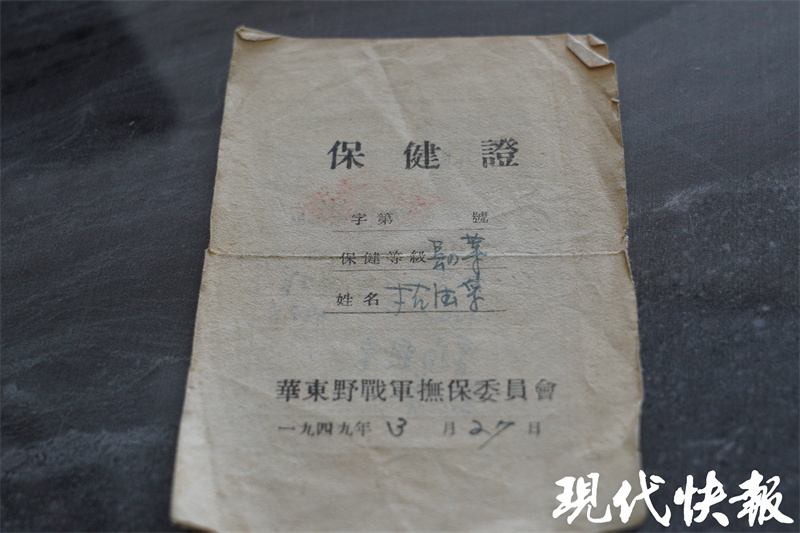 保健證
字第 號
保健等級
姓名
華東野戰軍撫保委員會
一九四九年 3 月 27 日
現代快報